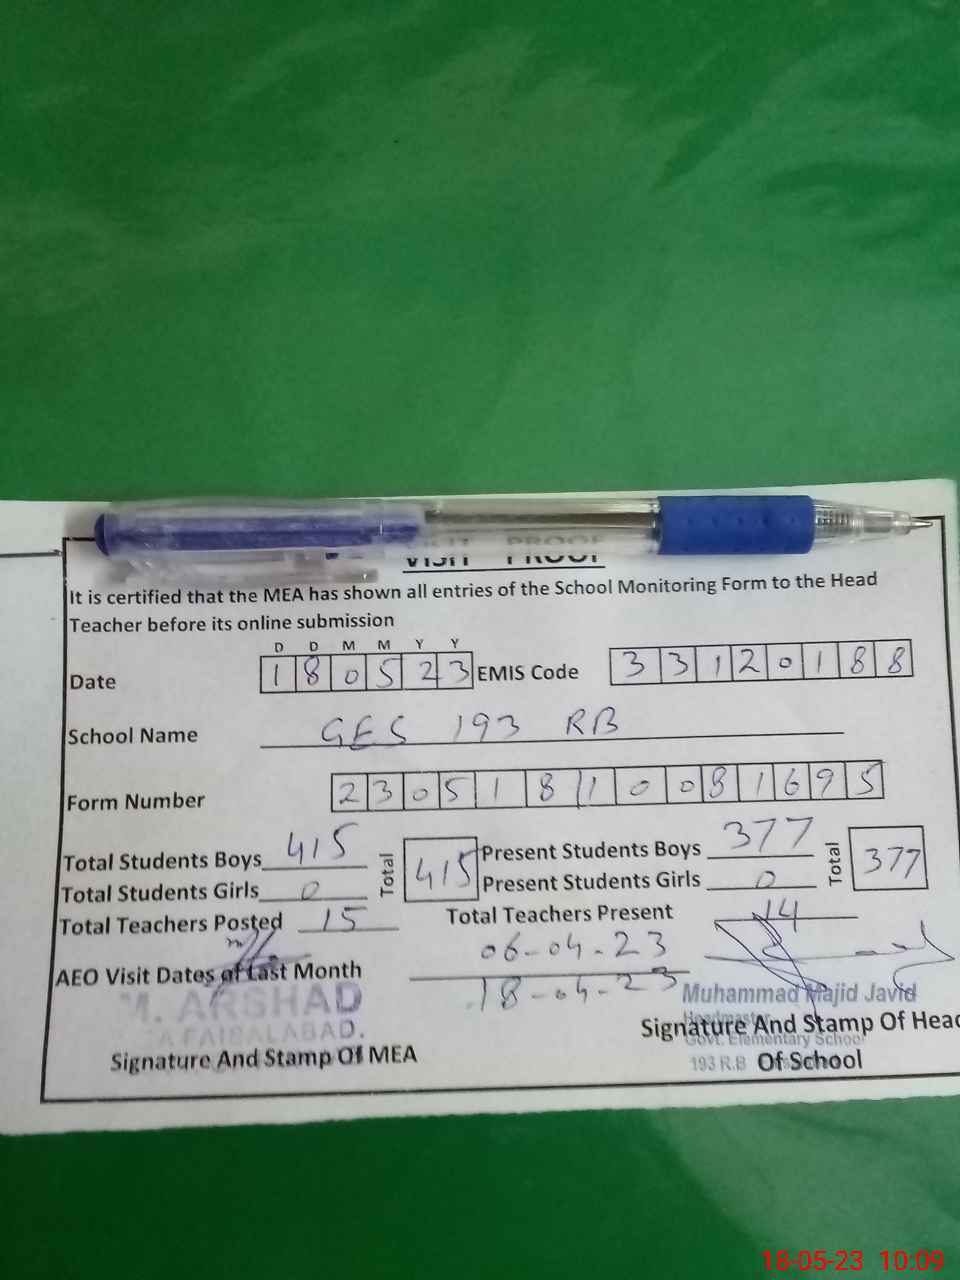 VISIT PROOF
It is certified that the MEA has shown all entries of the School Monitoring Form to the Head
Teacher before its online submission
D D M M Y Y
Date 1 8 0 5 2 3 EMIS Code 3 3 1 2 0 1 8 8
School Name GES 193 RB
Form Number 2 3 0 5 1 8 1 0 0 8 1 6 9 5
Total Students Boys 415 Total 415 Present Students Boys 377 Total 377
Total Students Girls 0 Present Students Girls 0
Total Teachers Posted 15 Total Teachers Present 14
AEO Visit Dates of Last Month 06-04-23
18-04-23
M. ARSHAD
FAISALABAD.
Signature And Stamp Of MEA
Muhammad Majid Javid
Headmaster
Signature And Stamp Of Head
Govt. Elementary School
193 R.B
Of School
18-05-23 10:09